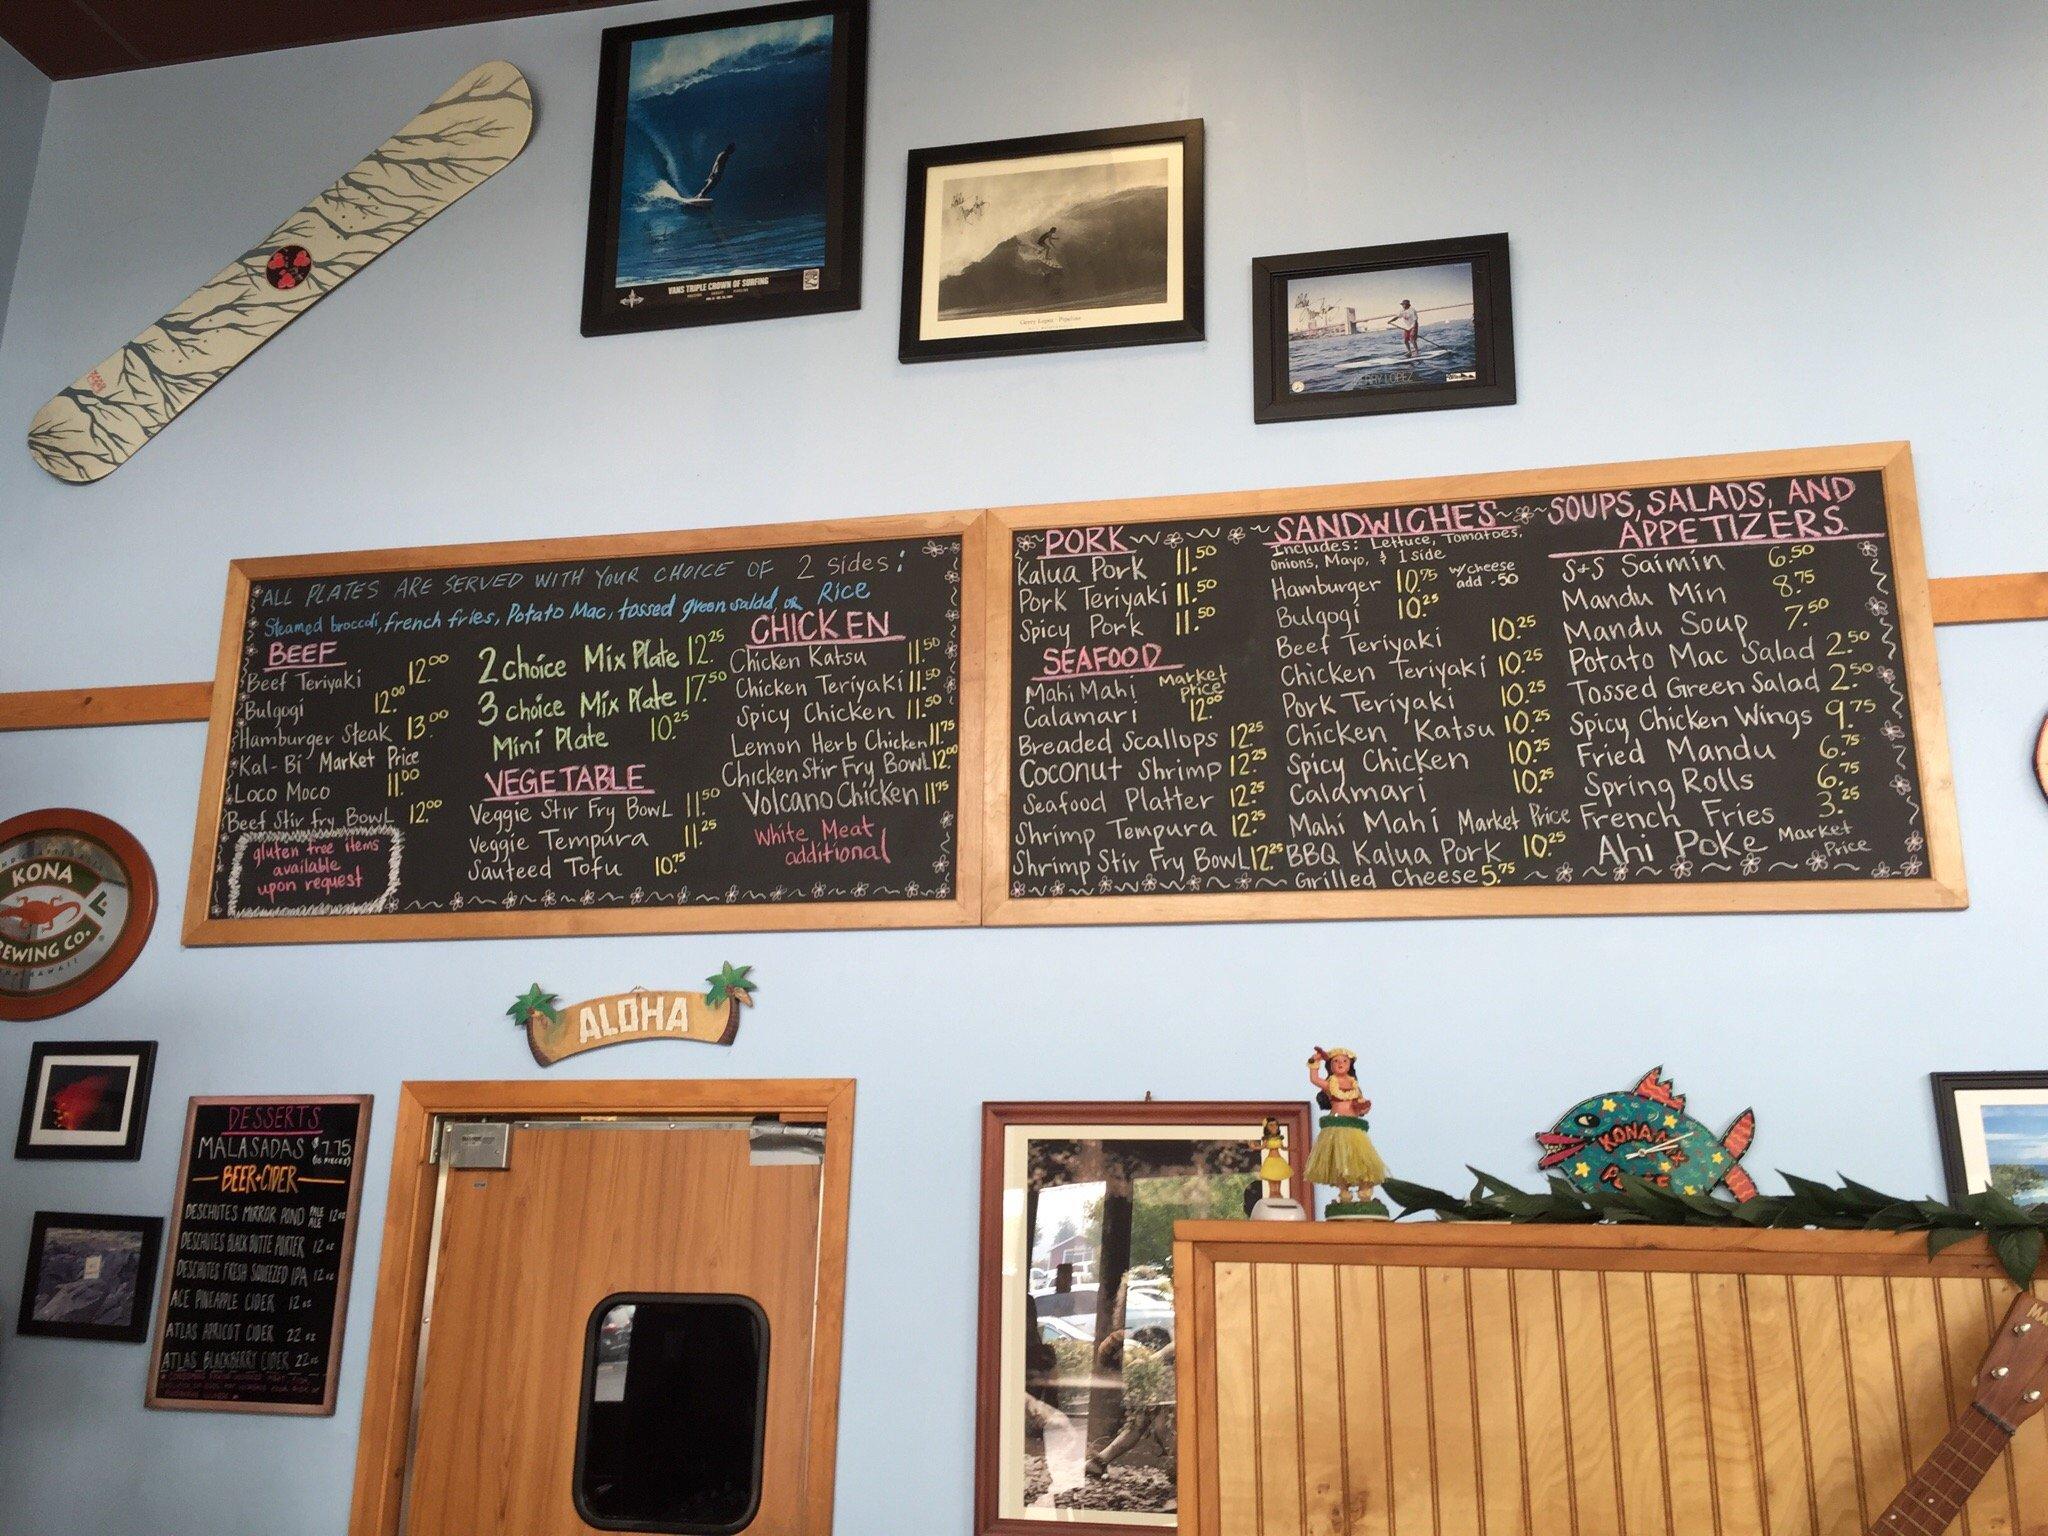 VANS TRIPLE CROWN OF SURFING
Gerry Lopez · Pipeline
GERRY LOPEZ
ALL PLATES ARE SERVED WITH YOUR CHOICE OF 2 sides:
Steamed broccoli, french fries, Potato Mac, tossed green salad, or Rice
BEEF
Beef Teriyaki 12.00
Bulgogi 12.00
Hamburger Steak 13.00
Kal-Bi Market Price
Loco Moco 11.00
Beef Stir Fry Bowl 12.00
gluten free items
available
upon request
2 choice Mix Plate 12.25
3 choice Mix Plate 17.50
Mini Plate 10.25
VEGETABLE
Veggie Stir Fry Bowl 11.50
Veggie Tempura 11.25
Sauteed Tofu 10.75
CHICKEN
Chicken Katsu 11.50
Chicken Teriyaki 11.50
Spicy Chicken 11.50
Lemon Herb Chicken 11.75
Chicken Stir Fry Bowl 12.00
Volcano Chicken 11.75
White Meat
additional
PORK
Kalua Pork 11.50
Pork Teriyaki 11.50
Spicy Pork 11.50
SEAFOOD
Mahi Mahi Market price
Calamari 12.00
Breaded Scallops 12.25
Coconut Shrimp 12.25
Seafood Platter 12.25
Shrimp Tempura 12.25
Shrimp Stir Fry Bowl 12.25
SANDWICHES
Includes: Lettuce, Tomatoes,
Onions, Mayo, & 1 side
Hamburger 10.75 w/cheese add .50
Bulgogi 10.25
Beef Teriyaki 10.25
Chicken Teriyaki 10.25
Pork Teriyaki 10.25
Chicken Katsu 10.25
Spicy Chicken 10.25
Calamari 10.25
Mahi Mahi Market Price
BBQ Kalua Pork 10.25
Grilled Cheese 5.75
SOUPS, SALADS, AND
APPETIZERS
S+S Saimin 6.50
Mandu Min 8.75
Mandu Soup 7.50
Potato Mac Salad 2.50
Tossed Green Salad 2.50
Spicy Chicken Wings 9.75
Fried Mandu 6.75
Spring Rolls 6.75
French Fries 3.25
Ahi Poke Market Price
KONA
BREWING CO.
HAWAII
ALOHA
DESSERTS
MALASADAS $7.75
(10 PIECES)
BEER+CIDER
DESCHUTES MIRROR POND PALE ALE 12oz
DESCHUTES BLACK BUTTE PORTER 12oz
DESCHUTES FRESH SQUEEZED IPA 12oz
ACE PINEAPPLE CIDER 12oz
ATLAS APRICOT CIDER 22oz
ATLAS BLACKBERRY CIDER 22oz
KONA MIX